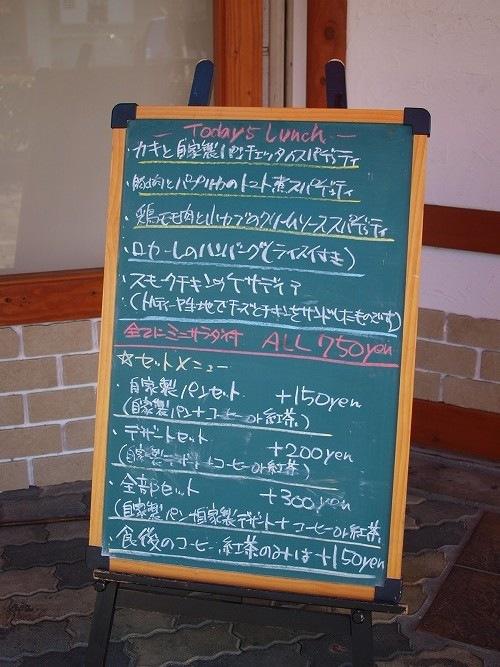 — Today's Lunch —
・カキと自家製パンチェッタのスパゲティ
・豚肉とパプリカのトマト煮スパゲティ
・鶏モモ肉とカブのクリームソーススパゲティ
・ロカールのハンバーグ(ライス付き)
・スモークチキンのケサディア
(トルティーヤ生地でチーズとチキンをサンドしたものです)
全てにミニサラダ付 ALL 750yen
☆セットメニュー
・自家製パンセット +150yen
(自家製パン+コーヒーor紅茶)
・デザートセット +200yen
(自家製デザート+コーヒーor紅茶)
・全部セット +300yen
(自家製パン+自家製デザート+コーヒーor紅茶
・食後のコーヒー、紅茶のみは+150yen